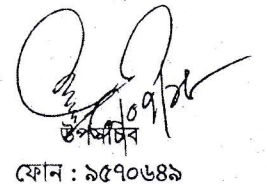 উপসচিব
ফোন : ৯৫৭০৬৪৯